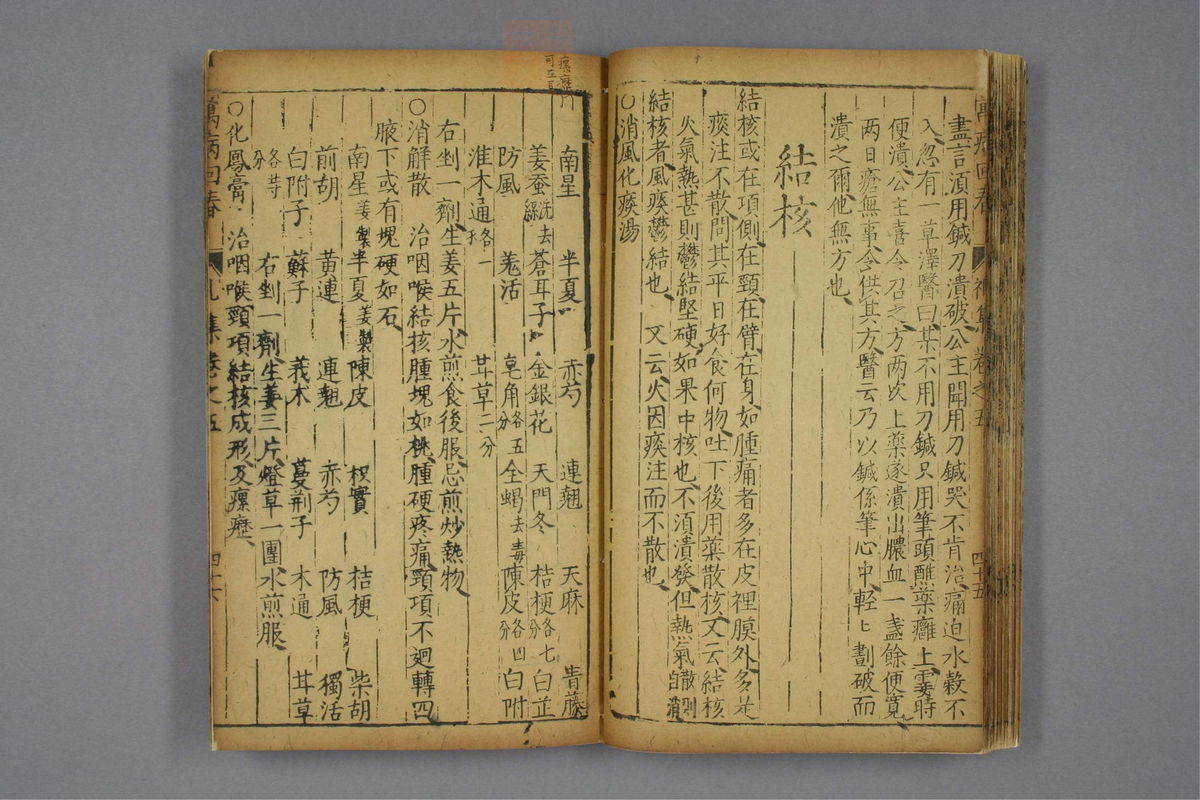 盡言湏用鍼刀潰破公主聞用刀鍼哭不肯治痛迫水穀不
入忽有一草澤醫曰某不用刀鍼只用筆頭蘸藥癰上霎時
便潰公主喜令召之方两次上藥遂潰出膿血一盞餘便寛
两日瘡無事令供其方醫云乃以鍼係筆心中輕〻劃破而
潰之爾他無方也
結核
結核或在項側在頸在臂在身如腫痛者多在皮裡膜外多是
痰注不散問其平日好食何物吐下後用藥散核又云結核
火氣熱甚則鬱結堅硬如果中核也不湏潰發但熱氣散則自消
結核者風痰鬱結也 又云火因痰注而不散也
○消風化痰湯
萬病回春 卷之五 四十五
瘰癧門
南星 半夏 赤芍 連翹 天麻 青藤
姜蚕洗去絲 蒼耳子 金銀花 天門冬 桔梗各七分 白芷
防風 羗活 皂角各五分 全蝎去毒 陳皮各四分 白附
淮木通各一 甘草二分
右剉一劑生姜五片水煎食後服忌煎炒熱物
○消解散 治咽喉結核腫塊如桃腫硬疼痛頸項不廻轉四
腋下或有塊硬如石
南星姜製 半夏姜製 陳皮 枳實 桔梗 柴胡
前胡 黄連 連翹 赤芍 防風 獨活
白附子 蘇子 莪木 蔓荆子 木通 甘草
各等分 右剉一劑生姜三片燈草一團水煎服
○化鳳膏 治咽喉頸項結核成形及瘰癧
萬病回春 集卷之五 四十六